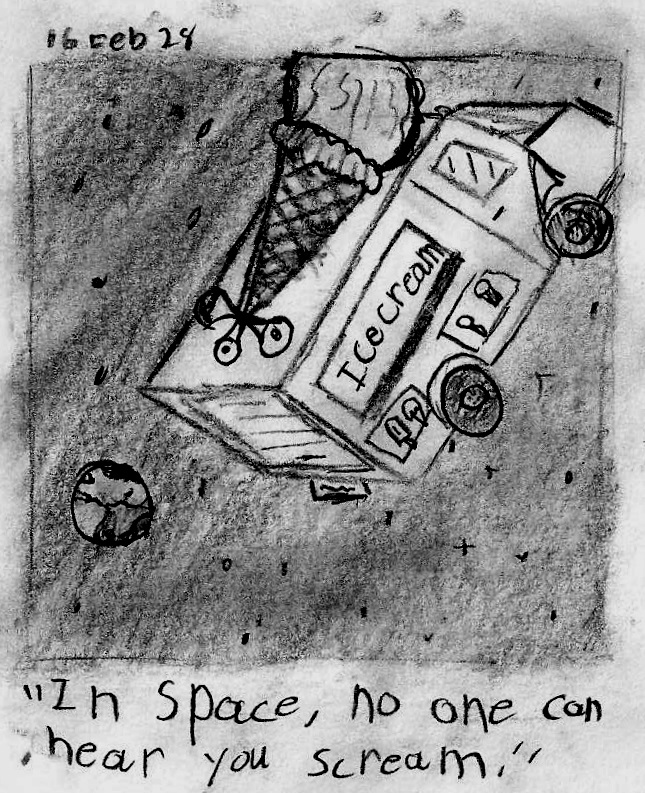 16 Feb 28
Ice cream
"In Space, no one can
hear you scream."